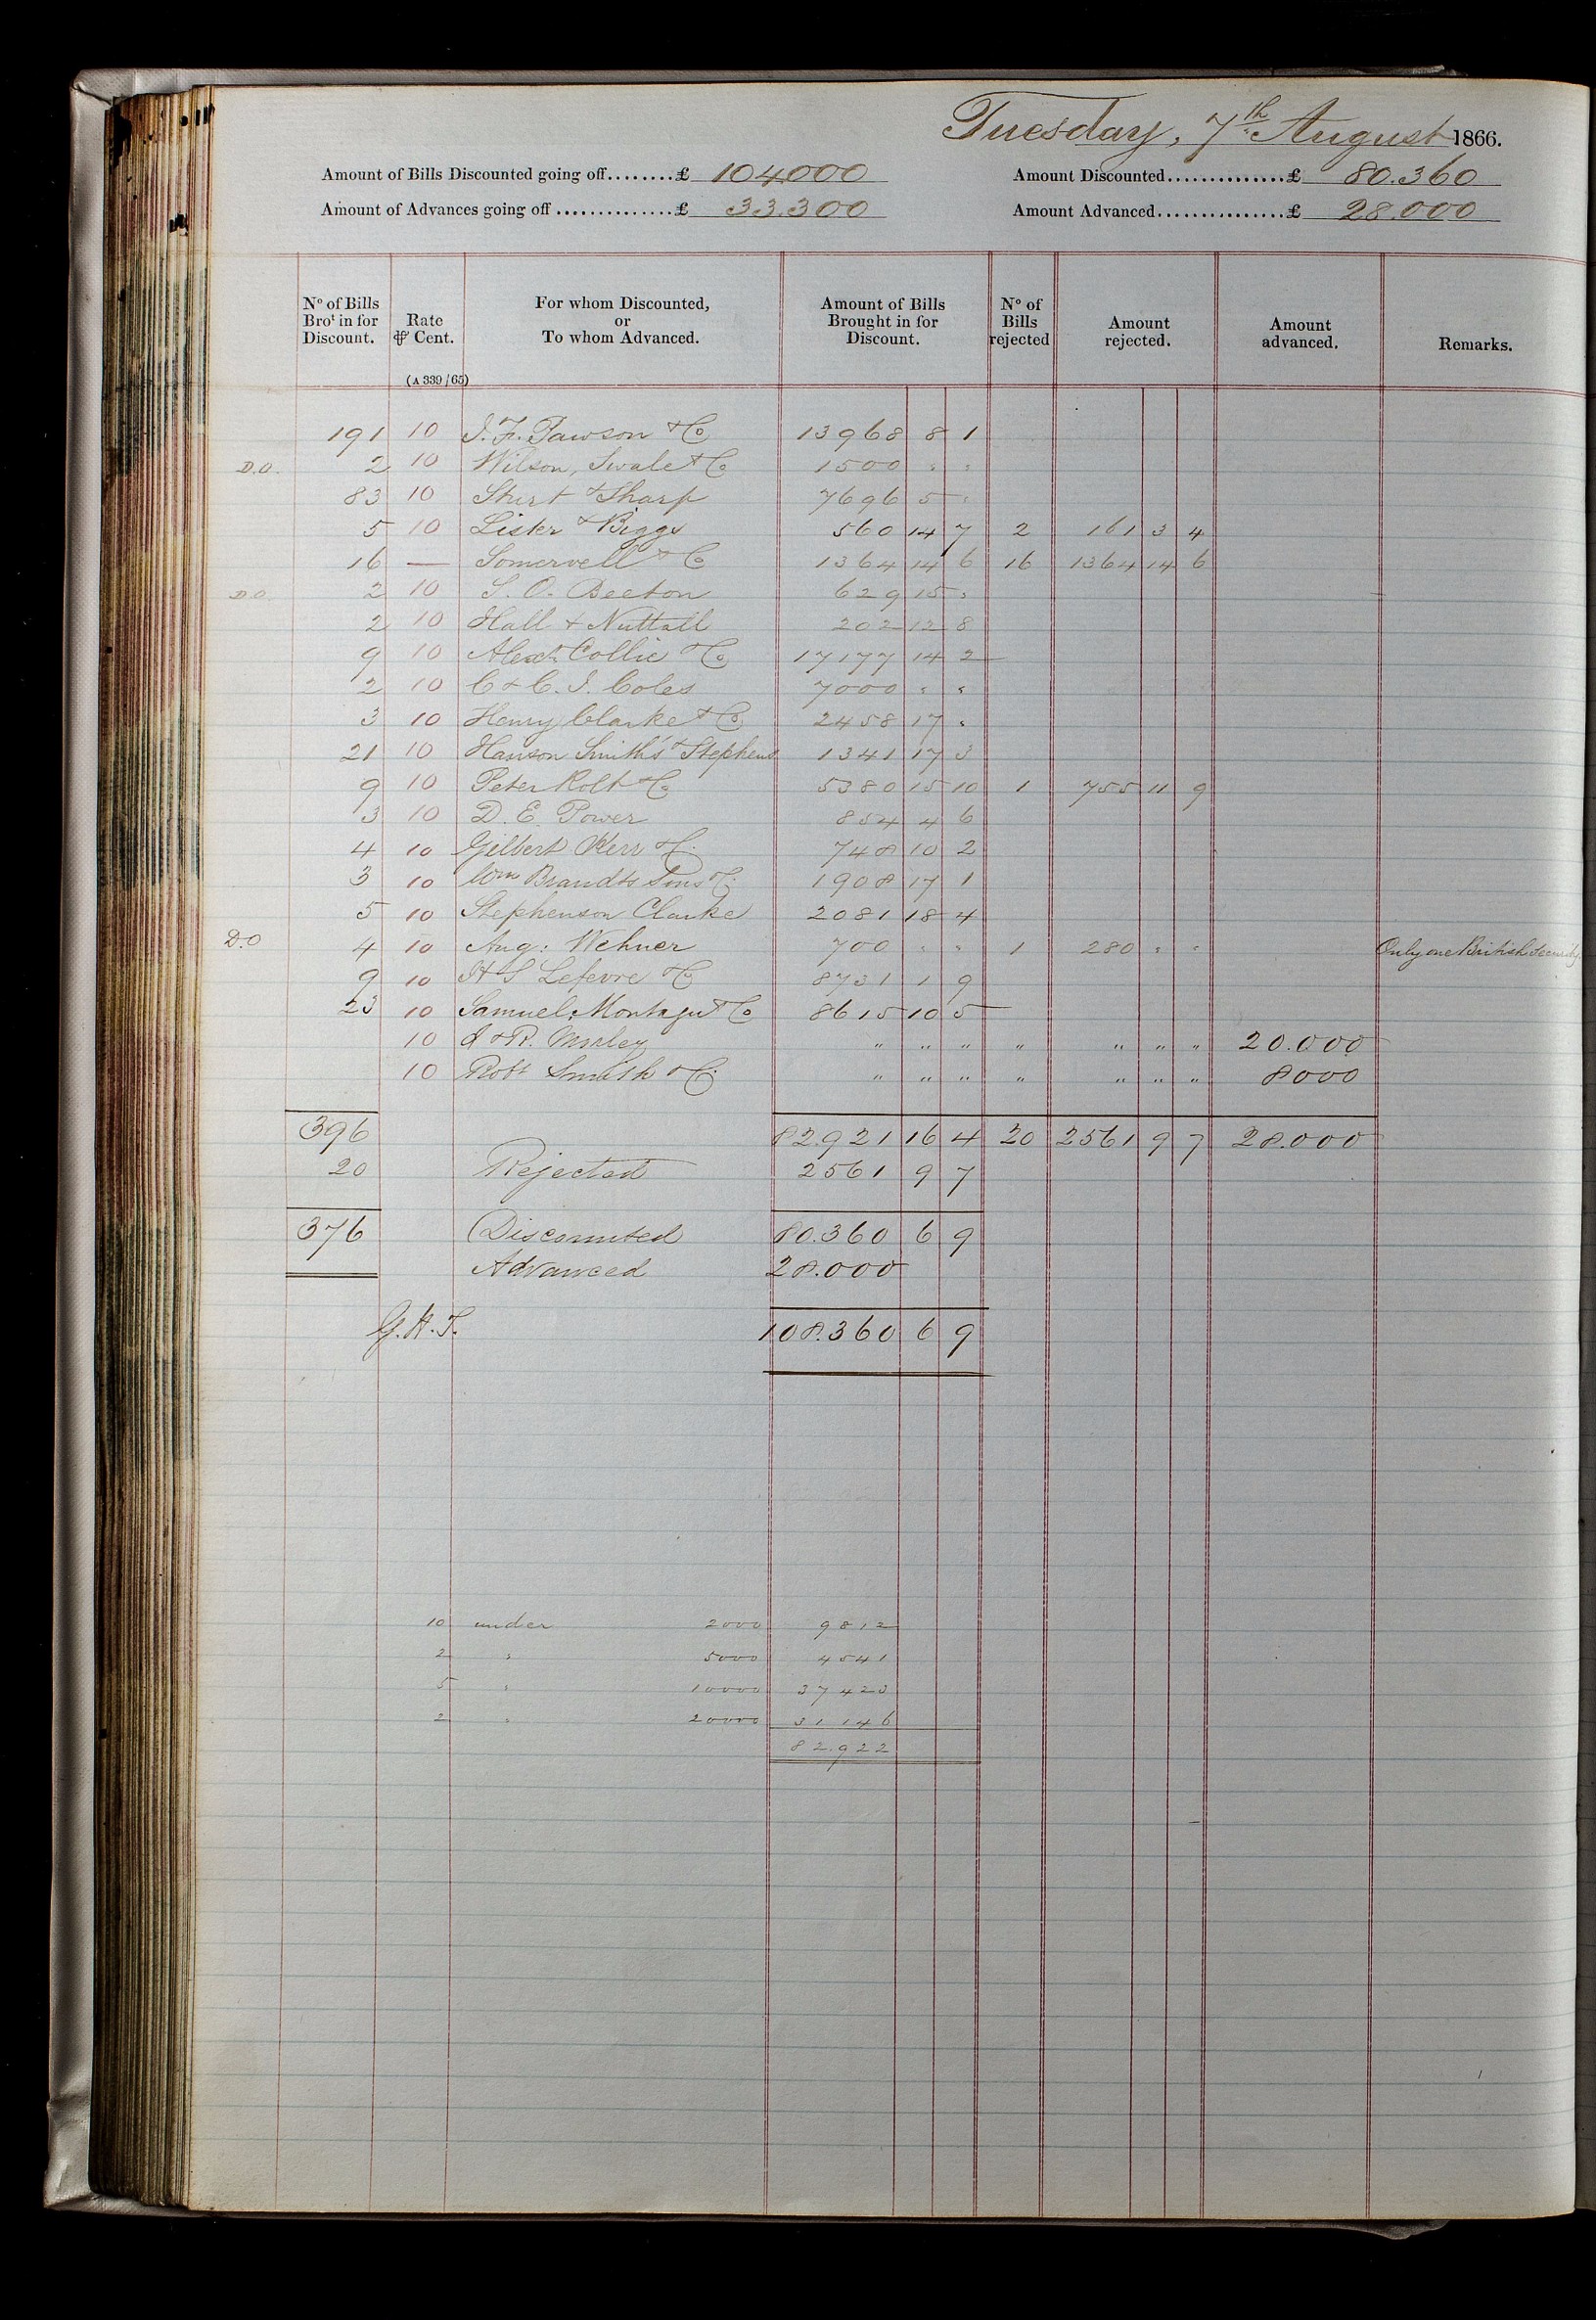 Tuesday, 7th August 1866.
Amount of Bills Discounted going off........£ 104.000 Amount Discounted..............£ 80.360
Amount of Advances going off..............£ 33.300 Amount Advanced...............£ 28.000
No of Bills Brot in for Discount. Rate ⅌ Cent. For whom Discounted, or To whom Advanced. Amount of Bills Brought in for Discount. No of Bills rejected Amount rejected. Amount advanced. Remarks.
(A 339/65)
191 10 J. F. Pawson & Co 13968 8 1
D.O. 2 10 Wilson, Swale & Co 1500 " "
83 10 Sturt & Sharp 7696 5 "
5 10 Lister & Biggs 560 14 7 2 161 3 4
16 — Somervell & Co 1364 14 6 16 1364 14 6
D.O. 2 10 S. O. Beeton 629 15 "
2 10 Hall & Nuttall 202 12 8
9 10 Alexr Collie & Co 17177 14 2
2 10 C & C. J. Coles 7000 " "
3 10 Henry Clarke & Co 2458 17 "
21 10 Hanson Smith's & Stephens 1341 17 3
9 10 Peter Rolt & Co 5380 15 10 1 755 11 9
3 10 D. E. Power 854 4 6
4 10 Gilbert Kerr & Co 748 10 2
3 10 Wm Brandts Sons & Co 1908 17 1
5 10 Stephenson Clarke 2081 18 4
D.O 4 10 Aug: Wehner 700 " " 1 280 " " Only one British Security
9 10 H S Lefevre & Co 8731 1 9
23 10 Samuel Montagu & Co 8615 10 5
10 I & R. Morley " " " " " " " 20.000
10 Robt Smith & Co " " " " " " " 8000
396 82.921 16 4 20 2561 9 7 28.000
20 Rejected 2561 9 7
376 Discounted 80.360 6 9
Advanced 28.000
G.H.T. 108.360 6 9
10 under 2000 9812
2 " 5000 4541
5 " 10000 37423
2 " 20000 31146
82.922